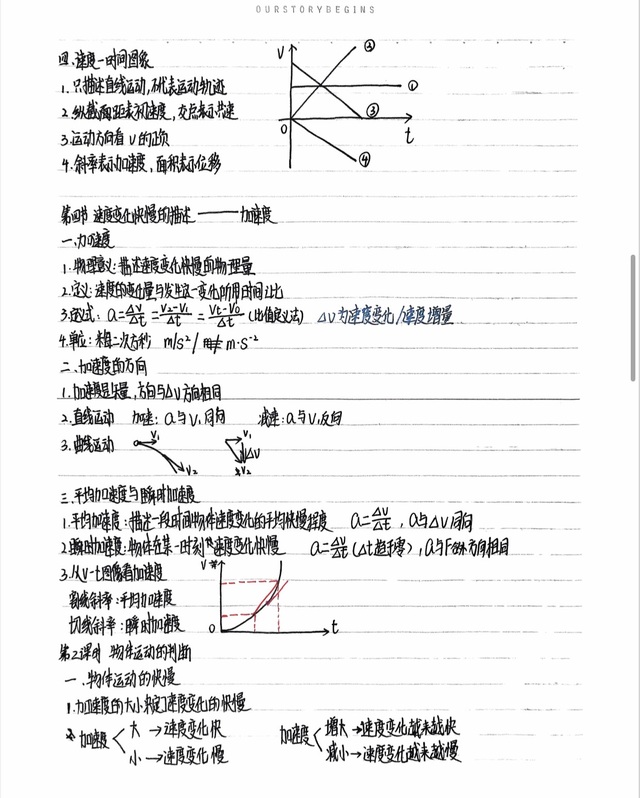 OURSTORYBEGINS
四.速度一时间图象
V
②
①
③
④
0
t
1.只描述直线运动,不代表运动轨迹
2.纵截面距表初速度,交点表示共速
3.运动方向看V的正负
4.斜率表示加速度,面积表示位移
第四节 速度变化快慢的描述——加速度
一.加速度
1.物理意义:描述速度变化快慢的物理量
2.定义:速度的变化量与发生这一变化所用时间之比
3.定义式:a=ΔV/Δt=(V₂-V₁)/Δt=(Vt-V₀)/Δt(比值定义法) ΔV为速度变化/速度增量
4.单位:米每二次方秒 m/s²/ m·s⁻²
二.加速度的方向
1.加速度是矢量,方向与ΔV方向相同
2.直线运动 加速:a与V₁同向 减速:a与V₁反向
3.曲线运动 V₁ V₂ V₁ ΔV V₂
三.平均加速度与瞬时加速度
1.平均加速度:描述一段时间物体速度变化的平均快慢程度 a=ΔV/Δt,a与ΔV同向
2.瞬时加速度:物体在某一时刻速度变化快慢 a=ΔV/Δt(Δt趋于零),a与F合外方向相同
3.从V-t图像看加速度
V
0
t
割线斜率:平均加速度
切线斜率:瞬时加速度
第2课时 物体运动的判断
一.物体运动的快慢
1.加速度的大小决定速度变化的快慢
加速度 大→速度变化快 加速度 增大→速度变化越来越快
小→速度变化慢 减小→速度变化越来越慢